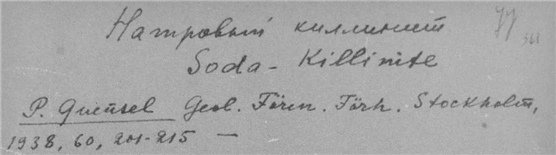 Натровый киллинит
Soda - Killinite
P. Quensel Geol. Fören. Förh. Stockholm,
1938, 60, 201-215 —